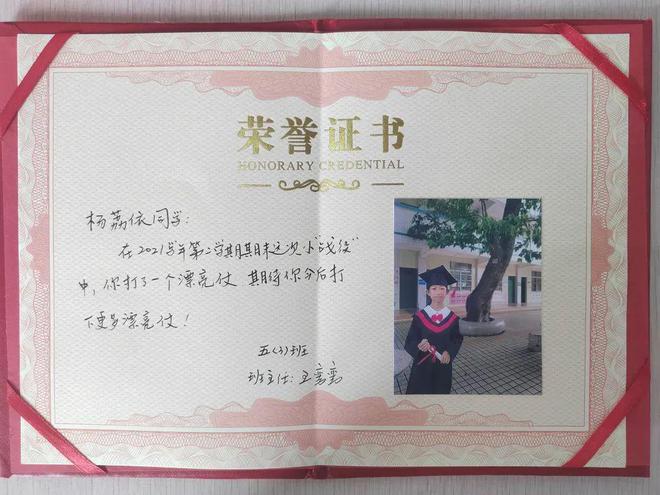 荣誉证书
HONORARY CREDENTIAL
杨荔依同学:
在2021学年第二学期期末这次小"战役"
中,你打了一个漂亮仗 期待你今后打
下更多漂亮仗!
五(3)班
班主任:王雪雪